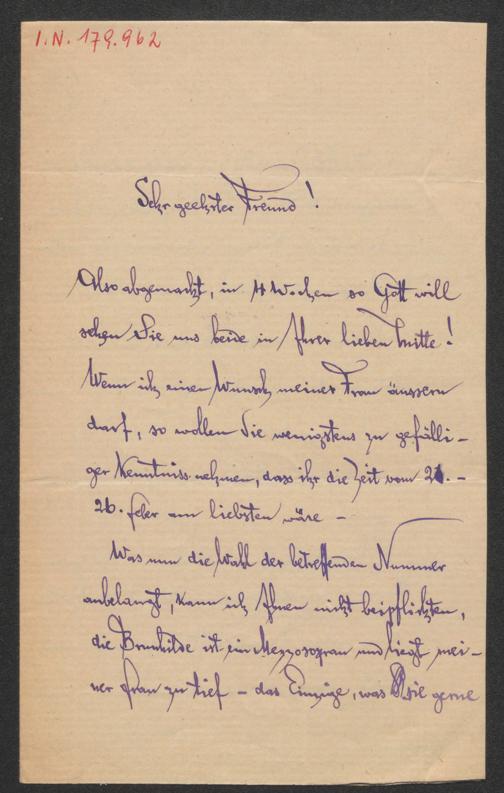 I.N. 179.962
Sehr geehrter Freund!
Also abgemacht, in 4 Wochen so Gott will
sehen Sie uns beide in Ihrer lieben Mitte!
Wenn ich einen Wunsch meiner Frau äussern
darf, so wollen Sie wenigstens zu gefälli-
ger Kenntniss nehmen, dass ihr die Zeit vom 21.-
26. feber am liebsten wäre -
Was nun die Wahl der betreffenden Nummer
anbelangt, kann ich Ihnen nicht beipflichten,
die Brunhilde ist ein Mezzosopran und liegt mei-
ner Frau zu tief - das Einzige, was sie gerne